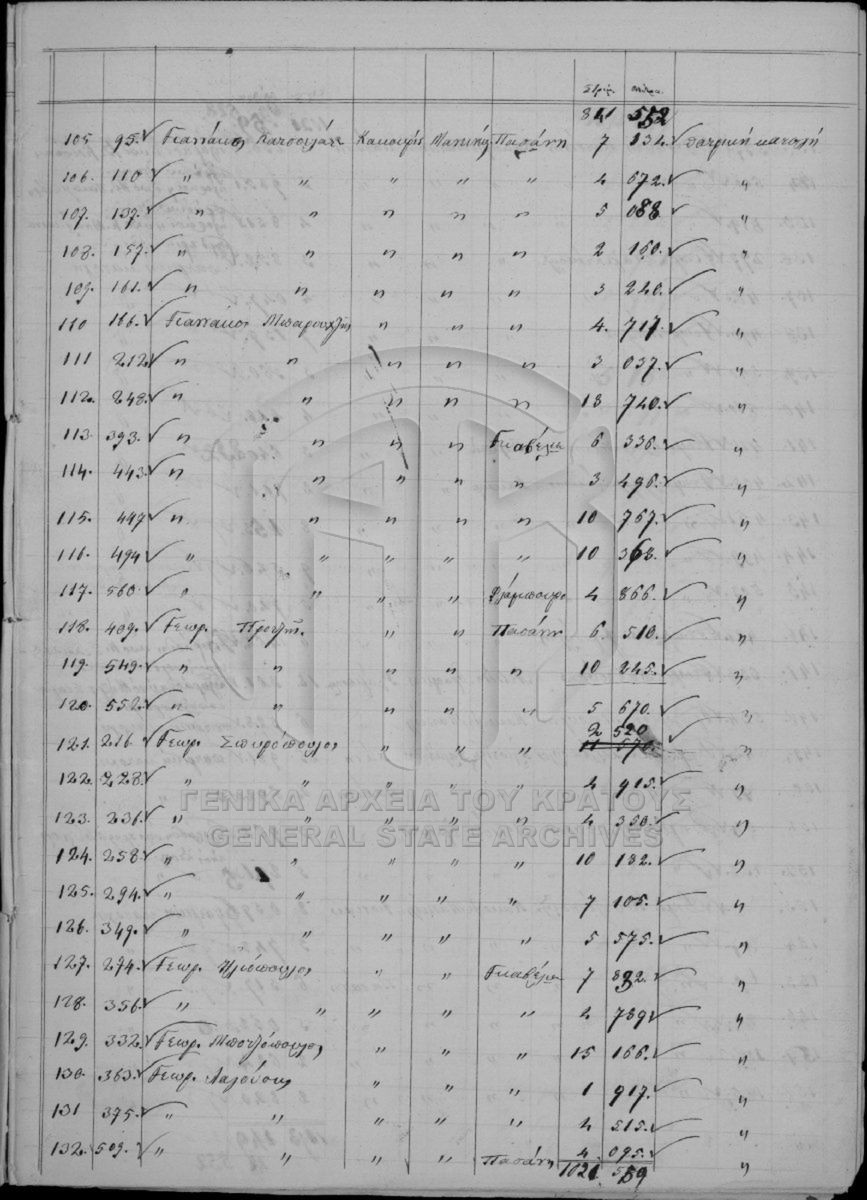 Στρέμ. Μέτρα
841 552
105 95. Γιαννάκος Κατσιλάς Πασάνη 7 134. πατρική κατοχή
106. 110 " " " " " 4 672. "
107. 137. " " " " " 5 088 "
108. 157. " " " " " 2 160. "
109. 161. " " " " " 3 240. "
110 166. Γιαννάκος " " " 4. 717. "
111 212 " " " " " 3 037. "
112. 248. " " " " " 13 740. "
113. 393. " " " " Γκαβέλα 6 336. "
114. 443. " " " " " 3 496. "
115. 447 " " " " " 10 767. "
116. 494 " " " " " 10 368. "
117. 560. " " " " Φλάμπουρο 4 866. "
118. 409. Γεωρ. " " Πασάνη 6. 510. "
119. 549. " " " " " 10 245. "
120. 552. " " " " " 5 670. "
2 520
121. 216 Γεωρ. Σπυρόπουλος " " " 11 570. "
122. 228. " " " " " 4 915. "
123. 236. " " " " " 4 350. "
124. 258 " " " " " 10 132. "
125. 294. " " " " " 7 105. "
126. 349. " " " " " 5 575. "
127. 274. Γεωρ. Ηλιόπουλος " " Γκαβέλα 7 832. "
128. 356. " " " " " 2 739 "
129. 332. Γεωρ. " " " 15 166. "
130. 363. Γεωρ. " " " 1 917. "
131 375. " " " " " 4 515. "
132. 509. " " " " Πασάνη 4. 095. "
1021. 559
ΓΕΝΙΚΑ ΑΡΧΕΙΑ ΤΟΥ ΚΡΑΤΟΥΣ
GENERAL STATE ARCHIVES